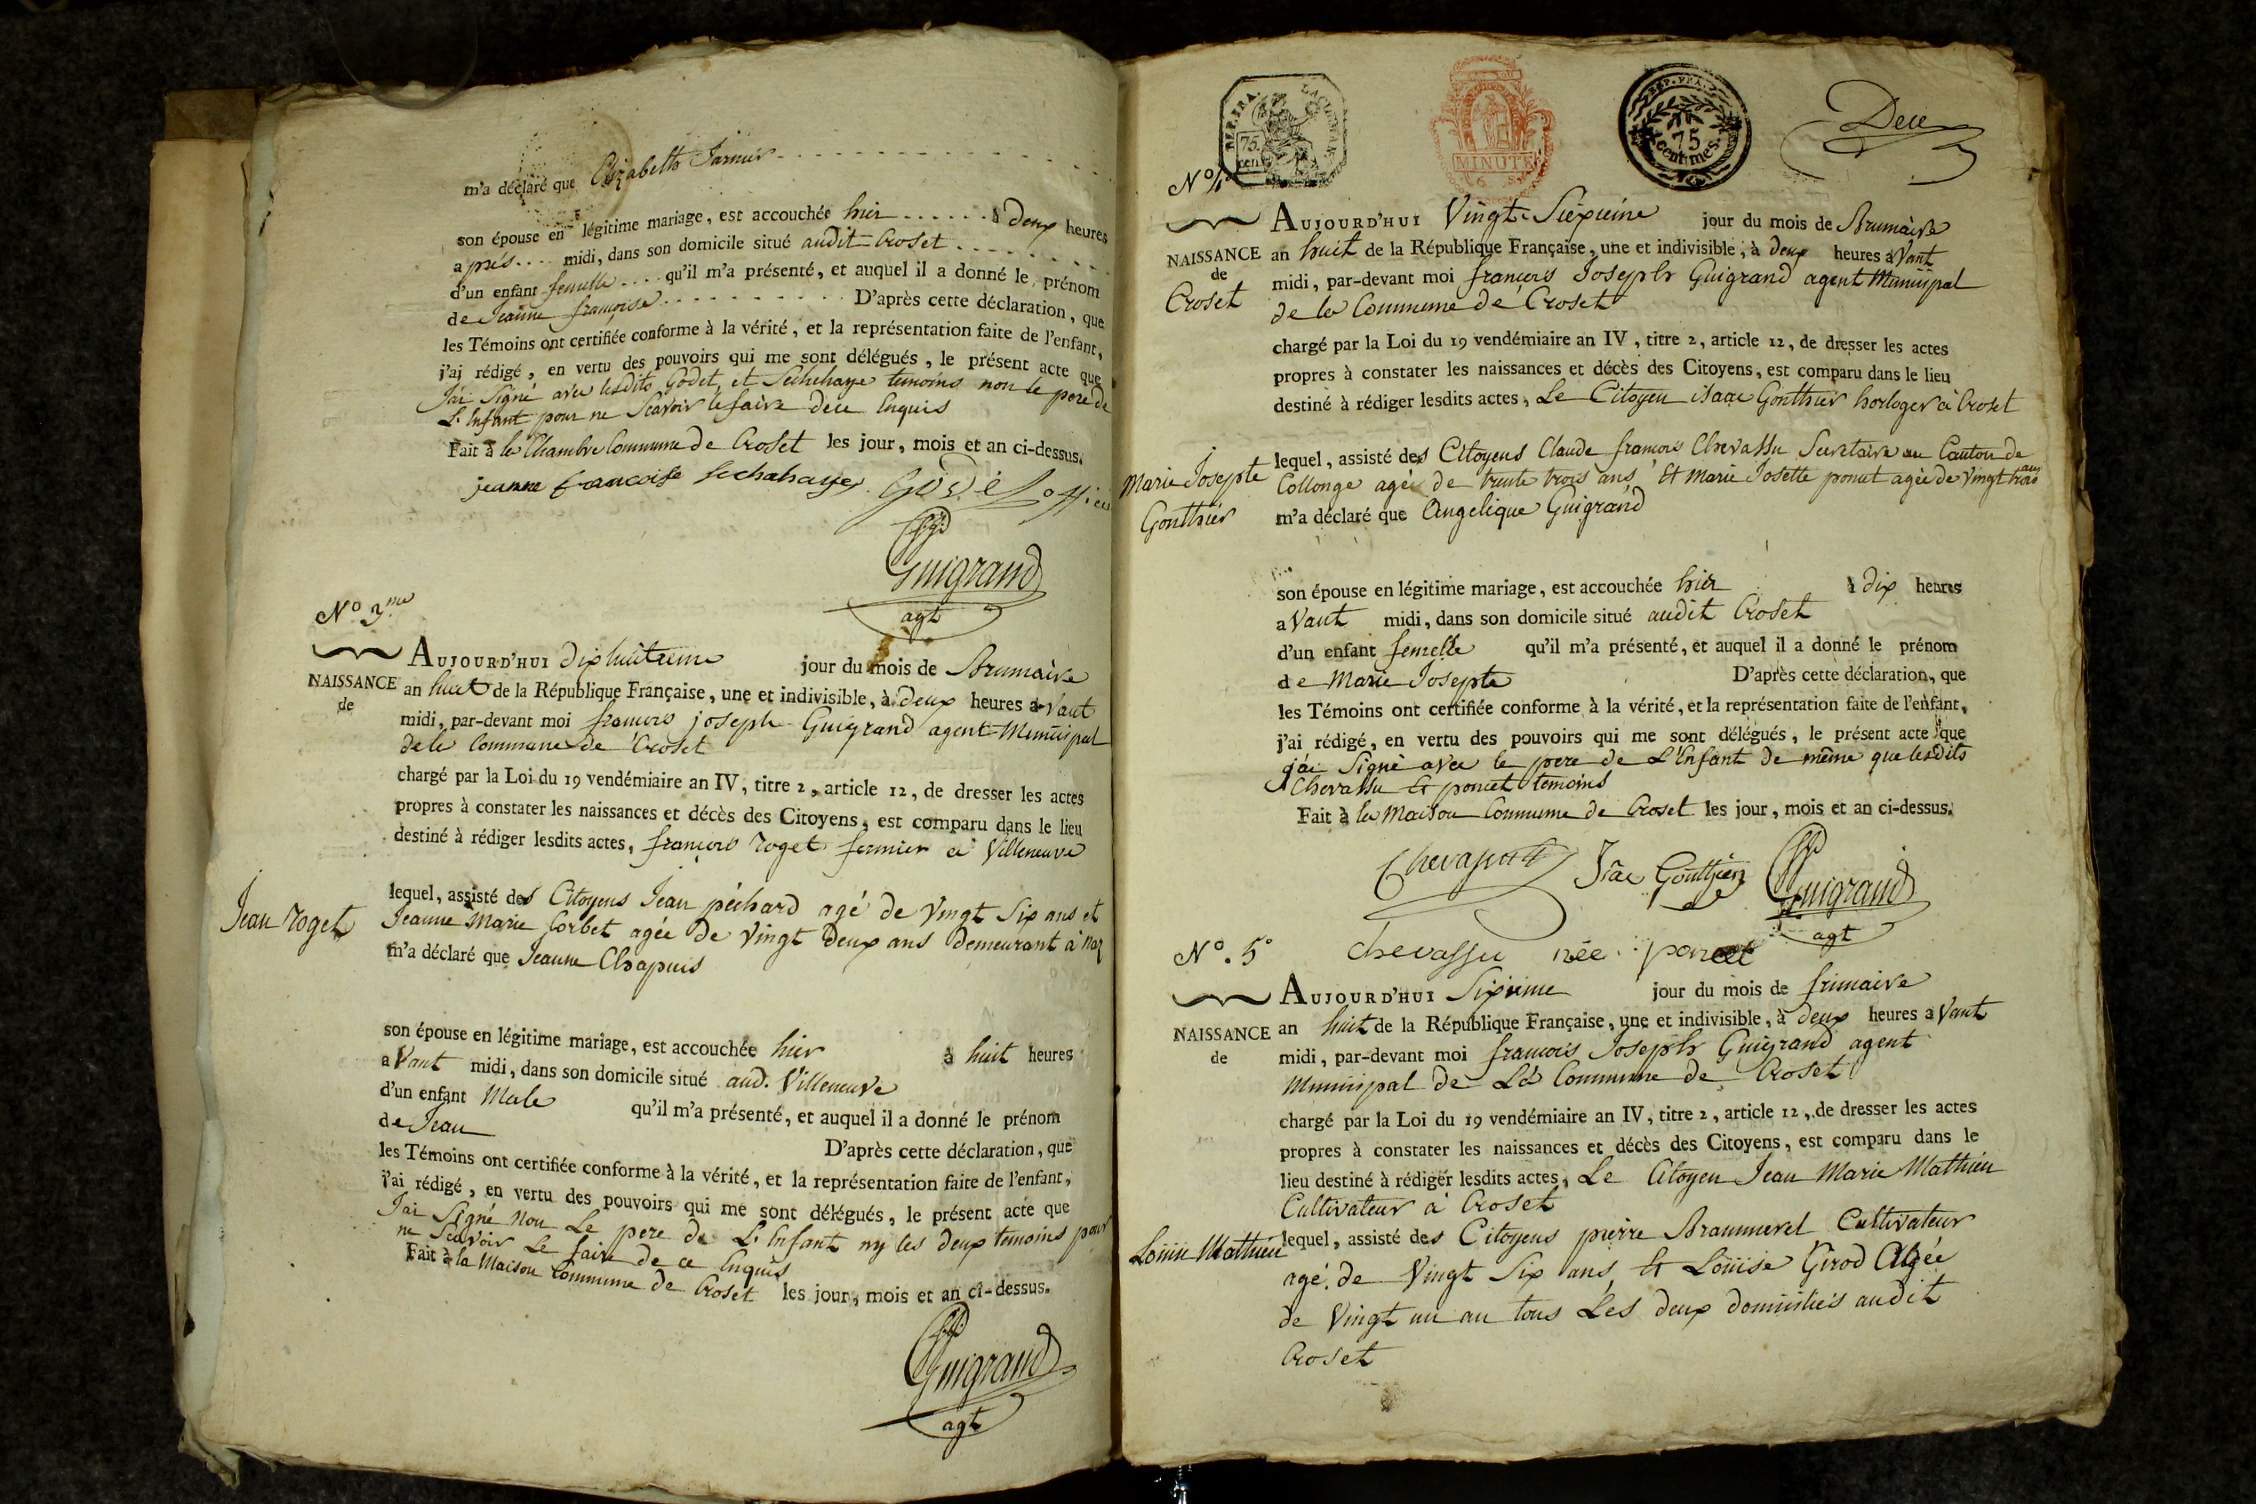 m'a déclaré que Elizabeth
son épouse en légitime mariage, est accouchée hier à Deux heures
après midi, dans son domicile situé audit Croset
d'un enfant femelle qu'il m'a présenté, et auquel il a donné le prénom
de Jeanne françoise D'après cette déclaration, que
les Témoins ont certifiée conforme à la vérité, et la représentation faite de l'enfant,
j'ai rédigé, en vertu des pouvoirs qui me sont délégués, le présent acte que
J'ai Signé avec lesdits Godet et Sechehaye temoins non le pere De
L'Enfant pour ne Scavoir le faire dece Enquis
Fait à la Chambre Commune de Croset les jour, mois et an ci-dessus.
jeanne francoise Sechehaye
Guigrand
agt
N° 3me
AUJOURD'HUI dixhuitieme jour du mois de Brumaire
NAISSANCE
de
an huit de la République Française, une et indivisible, à deux heures avant
midi, par-devant moi françois joseph Guigrand agent Municipal
de la Commune de Croset
chargé par la Loi du 19 vendémiaire an IV, titre 2, article 12, de dresser les actes
propres à constater les naissances et décès des Citoyens, est comparu dans le lieu
destiné à rédiger lesdits actes, françois roget fermier a Villeneuve
Jean roget
lequel, assisté des Citoyens Jean péchard agé de Vingt Six ans et
Jeanne Marie Corbet agée de Vingt Deux ans Demeurant à Naz
m'a déclaré que Jeanne Chapuis
son épouse en légitime mariage, est accouchée hier à huit heures
avant midi, dans son domicile situé aud. Villeneuve
d'un enfant Male qu'il m'a présenté, et auquel il a donné le prénom
de Jean D'après cette déclaration, que
les Témoins ont certifiée conforme à la vérité, et la représentation faite de l'enfant,
j'ai rédigé, en vertu des pouvoirs qui me sont délégués, le présent acte que
J'ai Signé Non Le pere de L'Enfant ny les deux temoins pour
ne Scavoir Le faire de ce Enquis
Fait à la Maison Commune de Croset les jour, mois et an ci-dessus.
Guigrand
agt
REP. FRA.
75
cent
MINUTE
REP. FRA.
75
centimes
N° 4°
AUJOURD'HUI Vingt-Sixieme jour du mois de Brumaire
NAISSANCE
de
Croset
an huit de la République Française, une et indivisible, à deux heures avant
midi, par-devant moi françois Joseph Guigrand agent Municipal
de la Commune de Croset
chargé par la Loi du 19 vendémiaire an IV, titre 2, article 12, de dresser les actes
propres à constater les naissances et décès des Citoyens, est comparu dans le lieu
destiné à rédiger lesdits actes, Le Citoyen isaac Gonthier horloger à Croset
Marie Josepte
Gonthier
lequel, assisté des Citoyens Claude françois Chevassu Secretaire au Canton de
Collonge agé de trente trois ans Et Marie Josette poncet agée de Vingt trois ans
m'a déclaré que Angelique Guigrand
son épouse en légitime mariage, est accouchée hier à dix heures
avant midi, dans son domicile situé audit Croset
d'un enfant femelle qu'il m'a présenté, et auquel il a donné le prénom
de Marie Josepte D'après cette déclaration, que
les Témoins ont certifiée conforme à la vérité, et la représentation faite de l'enfant,
j'ai rédigé, en vertu des pouvoirs qui me sont délégués, le présent acte que
j'ai Signé avec le pere de L'Enfant de même que lesdits
Chevassu Et poncet temoins
Fait à la Maison Commune de Croset les jour, mois et an ci-dessus.
Chevassu Isac Gonthier Guigrand
agt
chevassu née poncet
N°. 5°
AUJOURD'HUI Sixieme jour du mois de frimaire
NAISSANCE
de
an huit de la République Française, une et indivisible, à deux heures avant
midi, par-devant moi françois Joseph Guigrand agent
Municipal de La Commune de Croset
chargé par la Loi du 19 vendémiaire an IV, titre 2, article 12, de dresser les actes
propres à constater les naissances et décès des Citoyens, est comparu dans le
lieu destiné à rédiger lesdits actes, Le Citoyen Jean Marie Mathieu
Cultivateur à Croset
Loüise Mathieu
lequel, assisté des Citoyens pierre Cultivateur
agé de Vingt Six ans, Et Loüise Girod Agée
de Vingt un an tous Les deux domiciliés audit
Croset